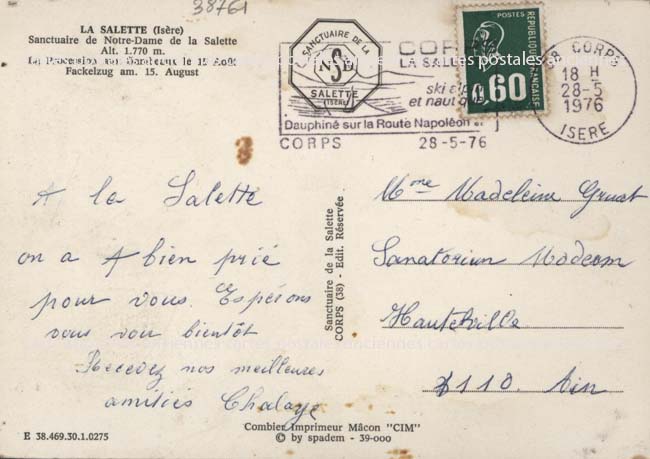 38761
LA SALETTE (Isère)
Sanctuaire de Notre-Dame de la Salette
Alt. 1.770 m.
La Procession aux flambeaux le 15 Août
Fackelzug am. 15. August
LA SANCTUAIRE DE LA
NSD
SALETTE
(ISÈRE)
CORPS
LA SALETTE
ski alpin
et nautique
Dauphiné sur la Route Napoléon
CORPS 28-5-76
POSTES
REPUBLIQUE FRANÇAISE
0.60
38 CORPS
18 H
28-5
1976
ISERE
A la Salette
on a bien prié
pour vous. Espérons
vous voir bientôt
Recevez nos meilleures
amitiés Chalaye
Sanctuaire de la Salette
CORPS (38) - Edit. Réservée
Mme Madeleine
Sanatorium
Hauteville
01110. Ain
E 38.469.30.1.0275
Combier Imprimeur Mâcon "CIM"
© by spadem - 39-000